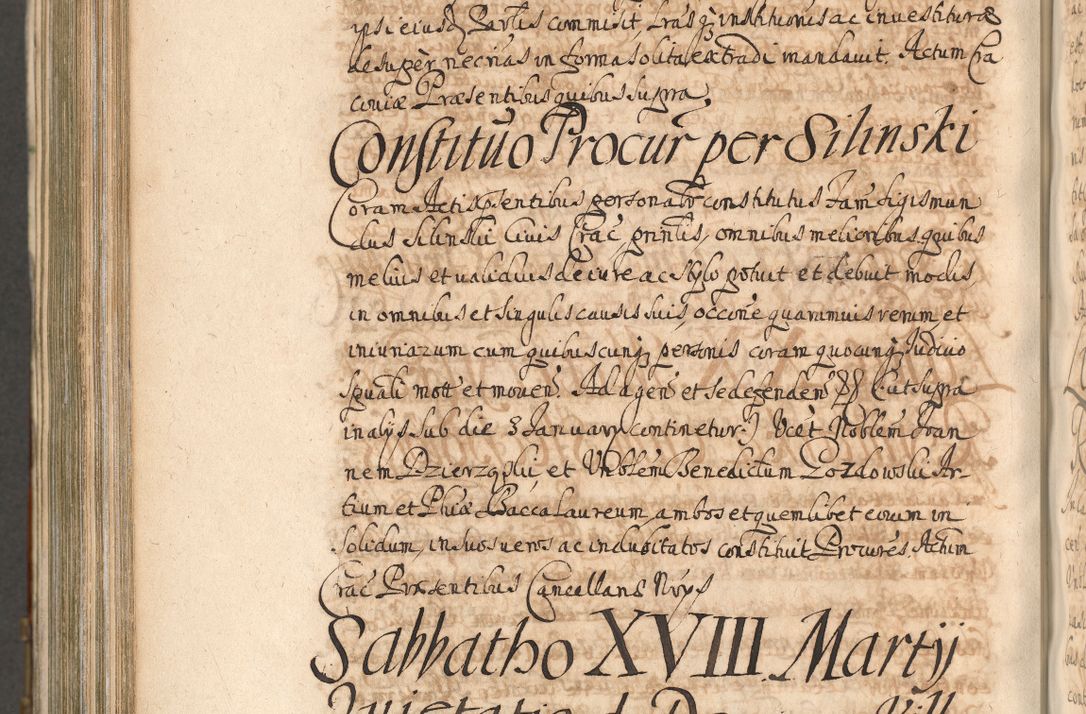 ipsi eiusq Partis commisit, Lras q̃ institutionis ac investituræ
desuper necrias in forma solita extradi mandauit. Actum Cra
coviæ Præsentibus quibus supra.
Constitũo Procur̃ per Silinski
Coram Actis p̃sentibus personalr̃ constitutus Fam̃ Sigismun
dus Silinski Civis Crac̃ prin̄lis, omnibus melioribus quibus
melius et validius de iure ac stylo potuit et debuit modis,
in omnibus et singulis causis suis, occõne quarumvis rerum et
iniuriarum cum quibuscunq personis coram quocunq Judicio
spũali mott̃ et moven̄. Ad agen̄ et se defenden̄ pp (ut supra
in alijs sub die 3 January continetur.) Vcet̃ Noblem̃ Joan
nem Dzierzgski, et Vnblem̃ Benedictum Lozdowski Ar-
tium et Phiæ Baccalaureum ambos et quemlibet eorum in
solidum, in suos veros ac indubitatos constituit Procures, Actum
Crac̃ Præsentibus Cancellariæ Noys
Sabbatho XVIII. Martij